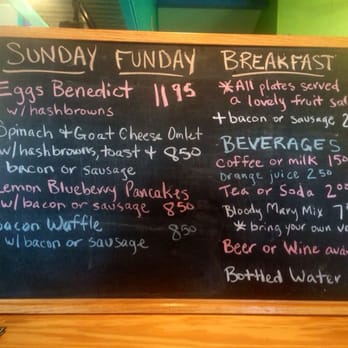 SUNDAY FUNDAY BREAKFAST
Eggs Benedict 11 95
w/ hashbrowns
Spinach + Goat Cheese Omlet
w/ hashbrowns, toast + 850
bacon or sausage
Lemon Blueberry Pancakes
w/ bacon or sausage 850
Bacon Waffle 850
w/ bacon or sausage
*All plates served
a lovely fruit
+ bacon or sausage
BEVERAGES
coffee or milk 150
orange juice 250
Tea or Soda 200
Bloody Mary Mix
* bring your own
Beer or Wine
Bottled Water